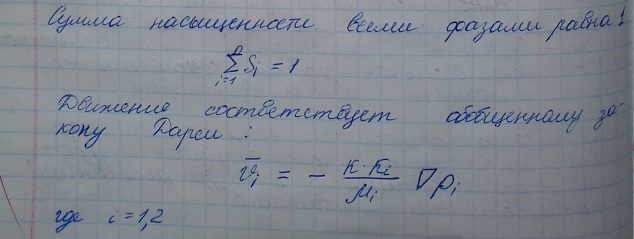 Сумма насыщенности всеми фазами равна 1
n
∑ Sᵢ = 1
i=1
Движение соответствует обобщенному за-
кону Дарси :
v̄ᵢ = - K·Kᵢ/μᵢ ∇pᵢ
где i = 1,2